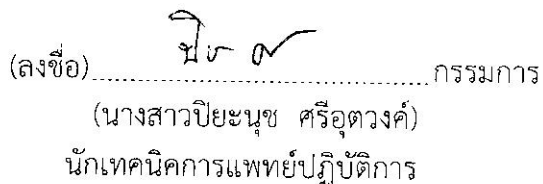 (ลงชื่อ)........................................กรรมการ
(นางสาวปิยะนุช ศรีอุตวงค์)
นักเทคนิคการแพทย์ปฏิบัติการ